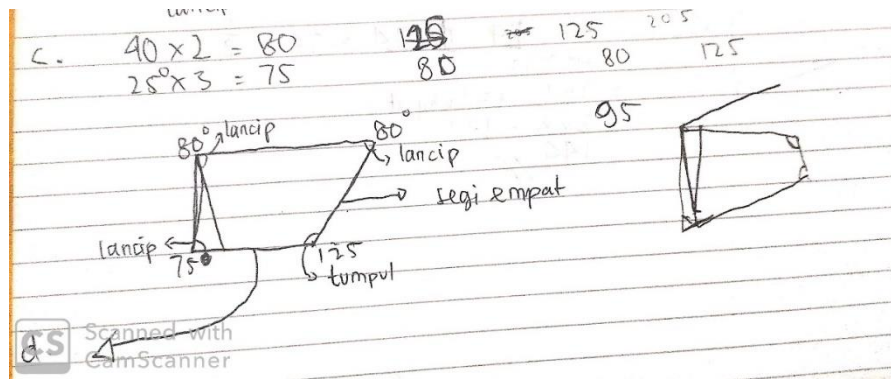 lancip
c. 40 × 2 = 80 80 125 205
25° × 3 = 75 80 125
95
80° lancip 80°
lancip
segi empat
lancip
75° 125
tumpul
d
CS Scanned with
CamScanner